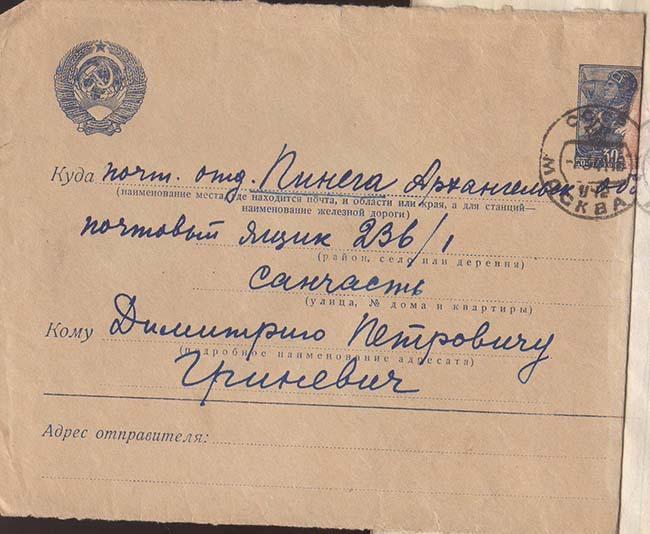 Куда почт. отд. Пинега Архангельск. об
(наименование места, где находится почта, и области или края, а для станций—
наименование железной дороги)
почтовый ящик 236/1
(район, село или деревня)
санчасть
(улица, № дома и квартиры)
Кому Димитрию Петровичу
(подробное наименование адресата)
Гриневич
Адрес отправителя:
СССР
МОСКВА
30